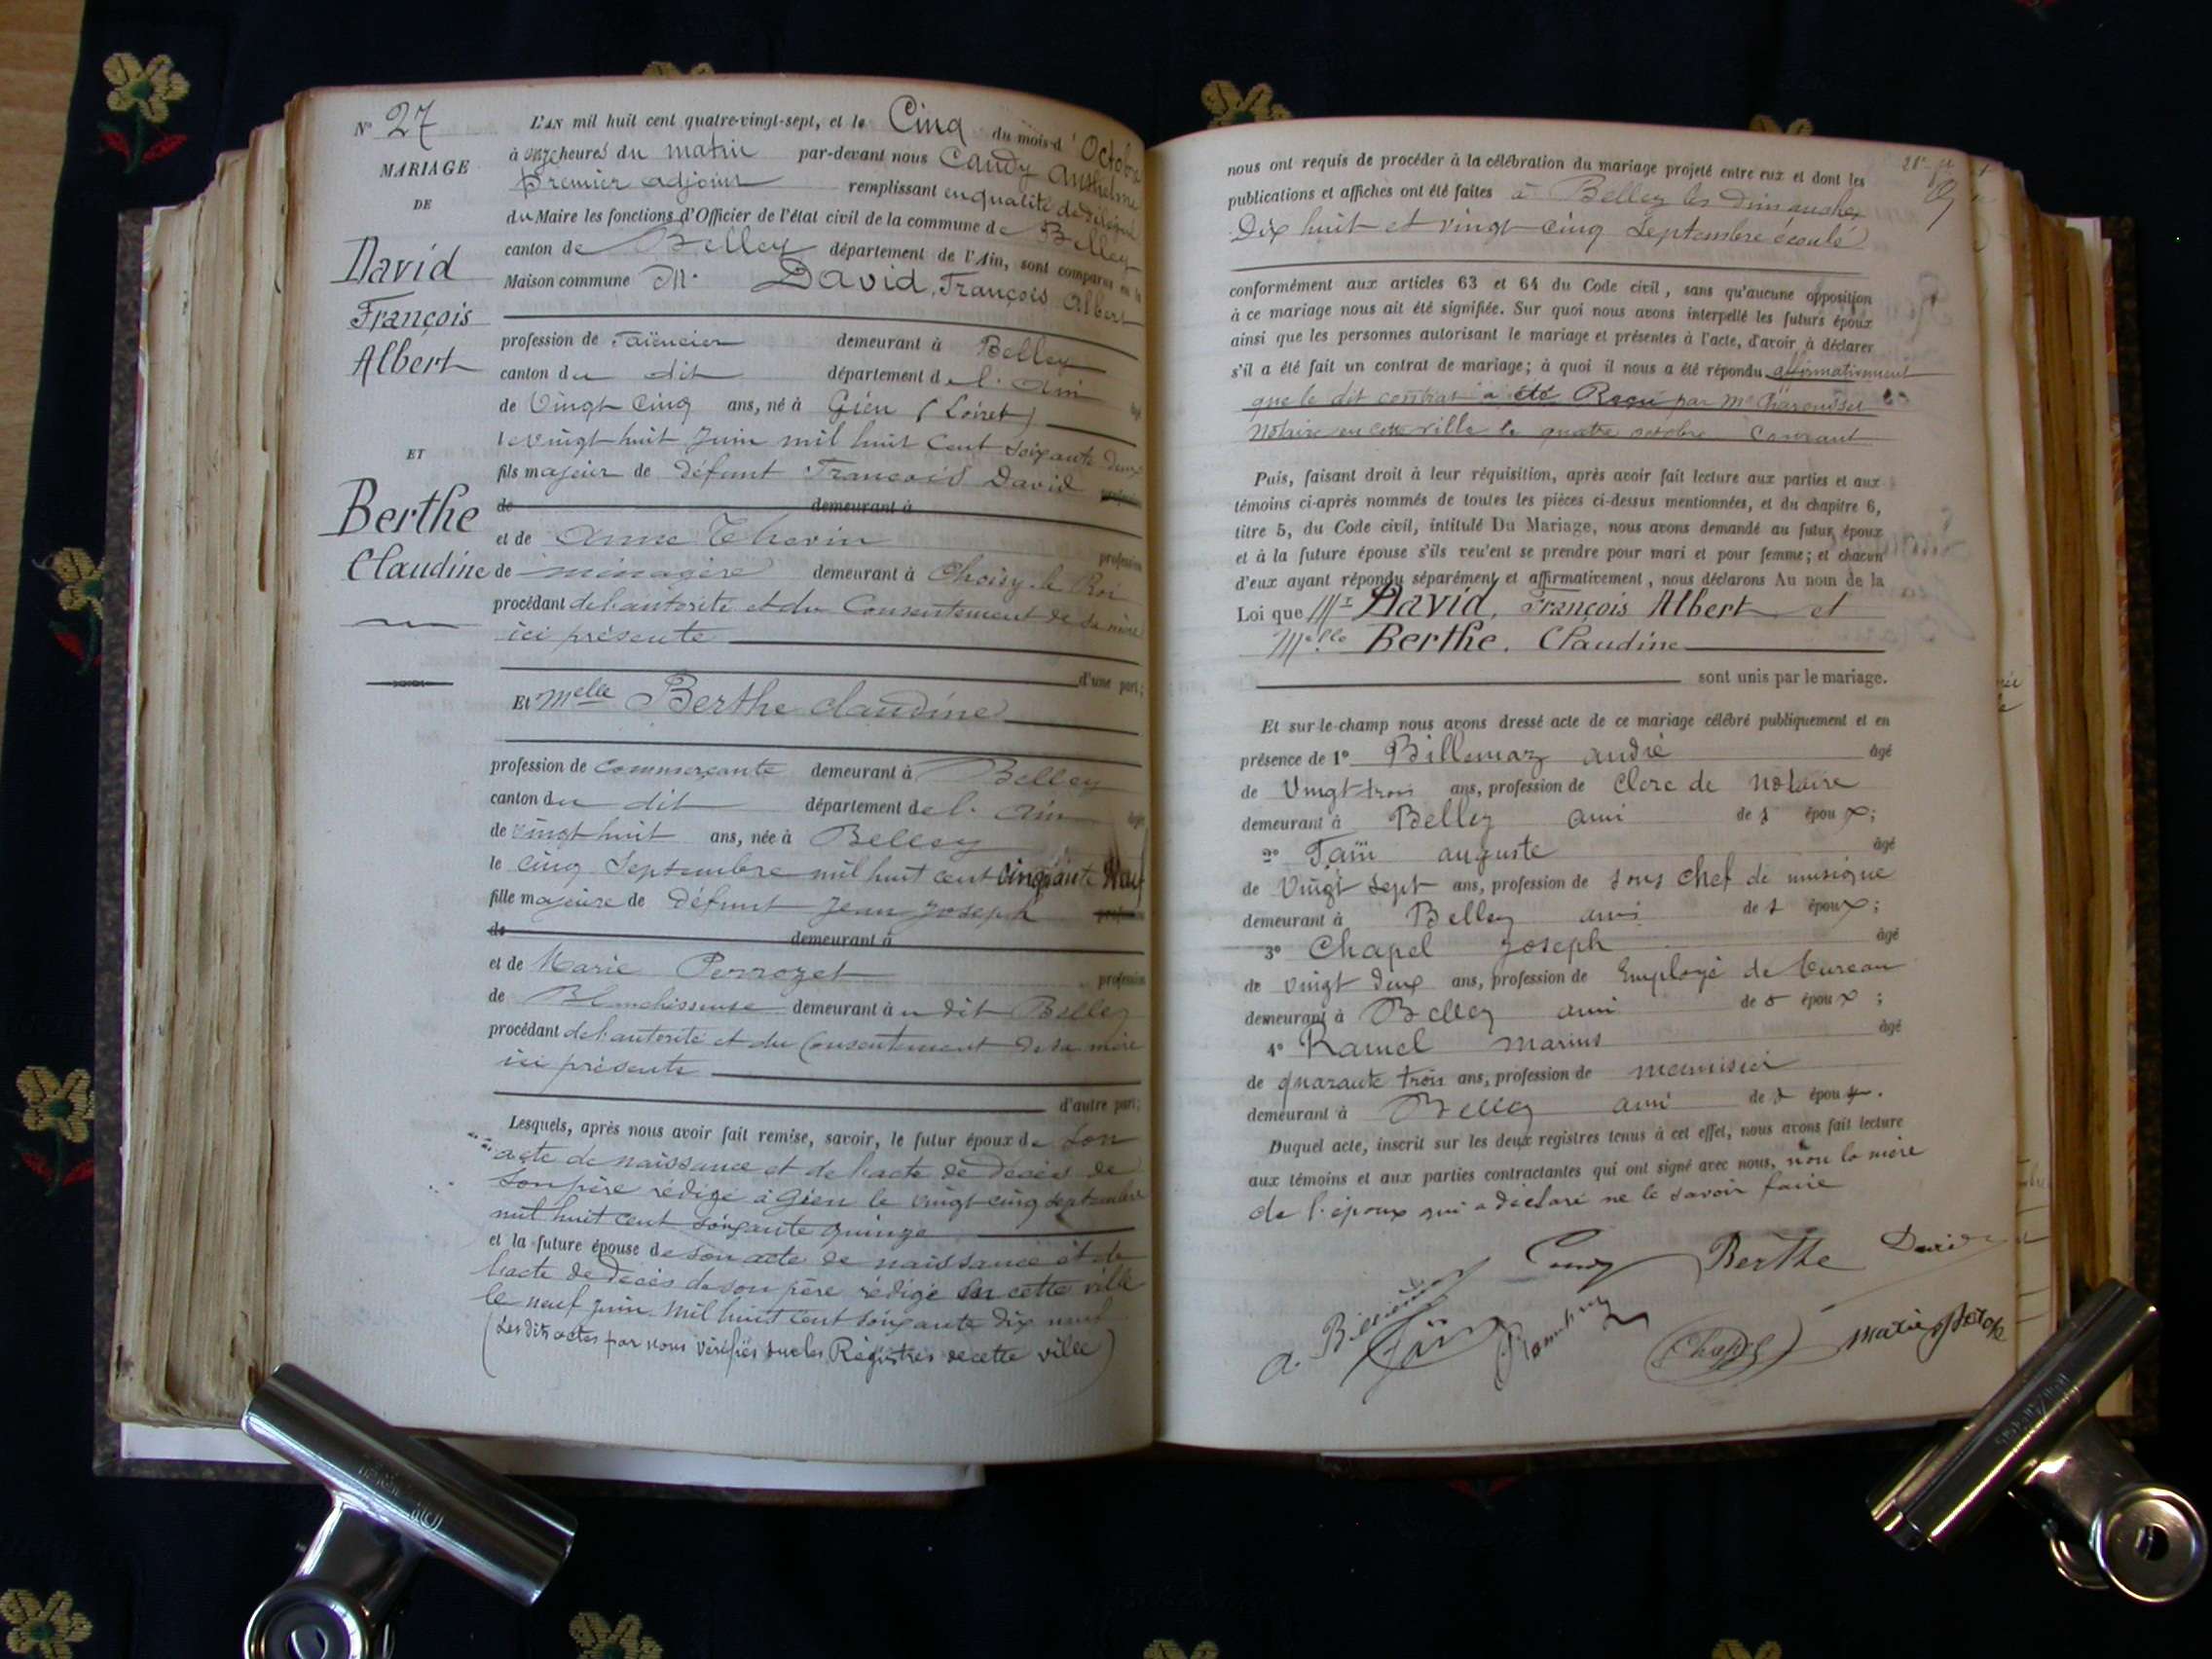 N° 27
MARIAGE
DE
David
François
Albert
ET
Berthe
Claudine
L'AN mil huit cent quatre-vingt-sept, et le Cinq du mois d'Octobre
à onze heures du matin par-devant nous Candy Anthelme
premier adjoint remplissant en qualité de délégué
du Maire les fonctions d'Officier de l'état civil de la commune de Belley
canton de Belley département de l'Ain, sont comparus en la
Maison commune Mr David, François Albert
profession de Faïencier demeurant à Belley
canton du dit département de l'Ain âgé
de Vingt Cinq ans, né à Gien (Loiret)
le vingt huit Juin mil huit Cent Soixante Deux
fils majeur de défunt François David profession
de demeurant à
et de Anne Thevin profession
de ménagère demeurant à Choisy le Roi
procédant de l'autorité et du Consentement de sa mère
ici présente
d'une part;
Et Melle Berthe Claudine
profession de Commerçante demeurant à Belley
canton du dit département de l'Ain âgée
de vingt huit ans, née à Belley
le cinq Septembre mil huit cent cinquante Neuf
fille majeure de défunt Jean Joseph profession
de demeurant à
et de Marie Perrozet profession
de Blanchisseuse demeurant à u dit Belley
procédant de l'autorité et du Consentement de sa mère
ici présente
d'autre part;
Lesquels, après nous avoir fait remise, savoir, le futur époux de Son
acte de naissance et de l'acte de décès de
Son père rédigé à Gien le vingt cinq Septembre
mil huit cent soixante quinze
et la future épouse de son acte de naissance et de
l'acte de décès de son père rédigé en cette ville
le neuf juin mil huit cent soixante dix neuf
(Les dits actes par nous vérifiés sur les Registres de cette ville)
nous ont requis de procéder à la célébration du mariage projeté entre eux et dont les
publications et affiches ont été faites à Belley les dimanches
Dix huit et vingt cinq Septembre écoulé
conformément aux articles 63 et 64 du Code civil, sans qu'aucune opposition
à ce mariage nous ait été signifiée. Sur quoi nous avons interpellé les futurs époux
ainsi que les personnes autorisant le mariage et présentes à l'acte, d'avoir à déclarer
s'il a été fait un contrat de mariage; à quoi il nous a été répondu affirmativement
que le dit contrat a été Reçu par Me
Notaire en cette ville le quatre octobre Courant
Puis, faisant droit à leur réquisition, après avoir fait lecture aux parties et aux
témoins ci-après nommés de toutes les pièces ci-dessus mentionnées, et du chapitre 6,
titre 5, du Code civil, intitulé Du Mariage, nous avons demandé au futur époux
et à la future épouse s'ils veulent se prendre pour mari et pour femme; et chacun
d'eux ayant répondu séparément et affirmativement, nous déclarons Au nom de la
Loi que Mr David, François Albert et
Melle Berthe, Claudine
sont unis par le mariage.
Et sur-le-champ nous avons dressé acte de ce mariage célébré publiquement et en
présence de 1° Billemaz andré âgé
de Vingt trois ans, profession de Clerc de Notaire
demeurant à Belley ami des époux;
2° auguste âgé
de Vingt sept ans, profession de Sous chef de musique
demeurant à Belley ami des époux;
3° Chapel Joseph âgé
de vingt deux ans, profession de Employé de bureau
demeurant à Belley ami des époux;
4° Ramel Marius âgé
de quarante trois ans, profession de menuisier
demeurant à Belley ami des époux.
Duquel acte, inscrit sur les deux registres tenus à cet effet, nous avons fait lecture
aux témoins et aux parties contractantes qui ont signé avec nous, non la mère
de l'époux qui a déclaré ne le savoir faire
Candy Berthe David
A. Chapel